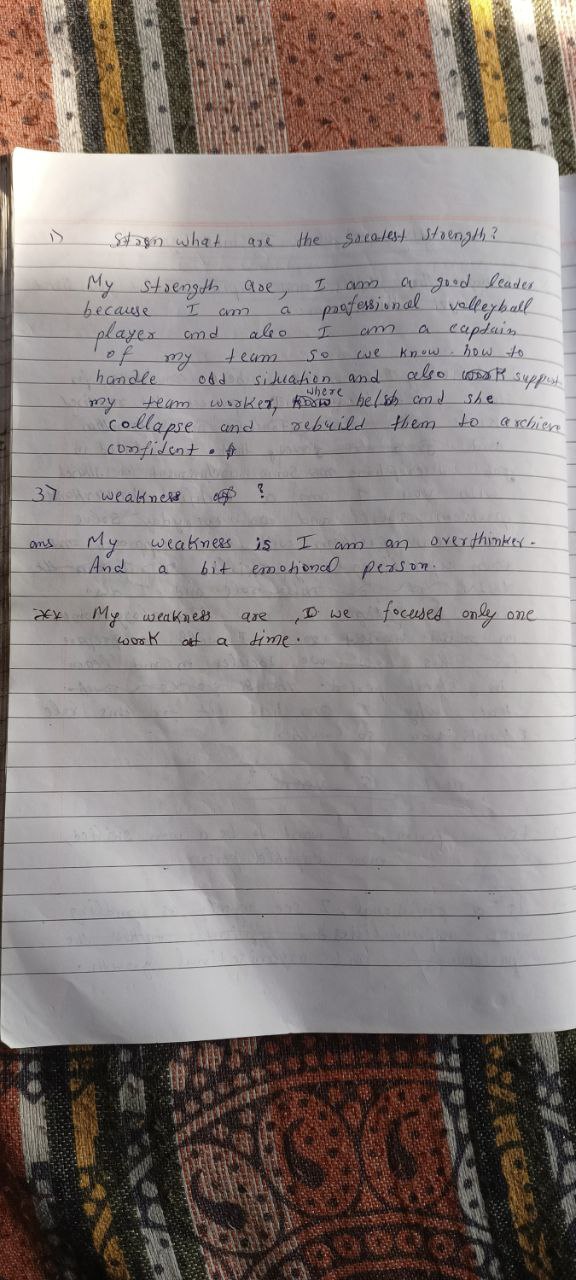 1) what are the greatest strength?
My strength are, I am a good leader
because I am a professional valleyball
player and also I am a captain
of my team so we know how to
handle odd situation and also support
my team worker, where he and she
collapse and rebuild them to archieve
confident.
3) weakness ?
ans My weakness is I am an overthinker.
And a bit emotional person.
My weakness are, we focused only one
work at a time.